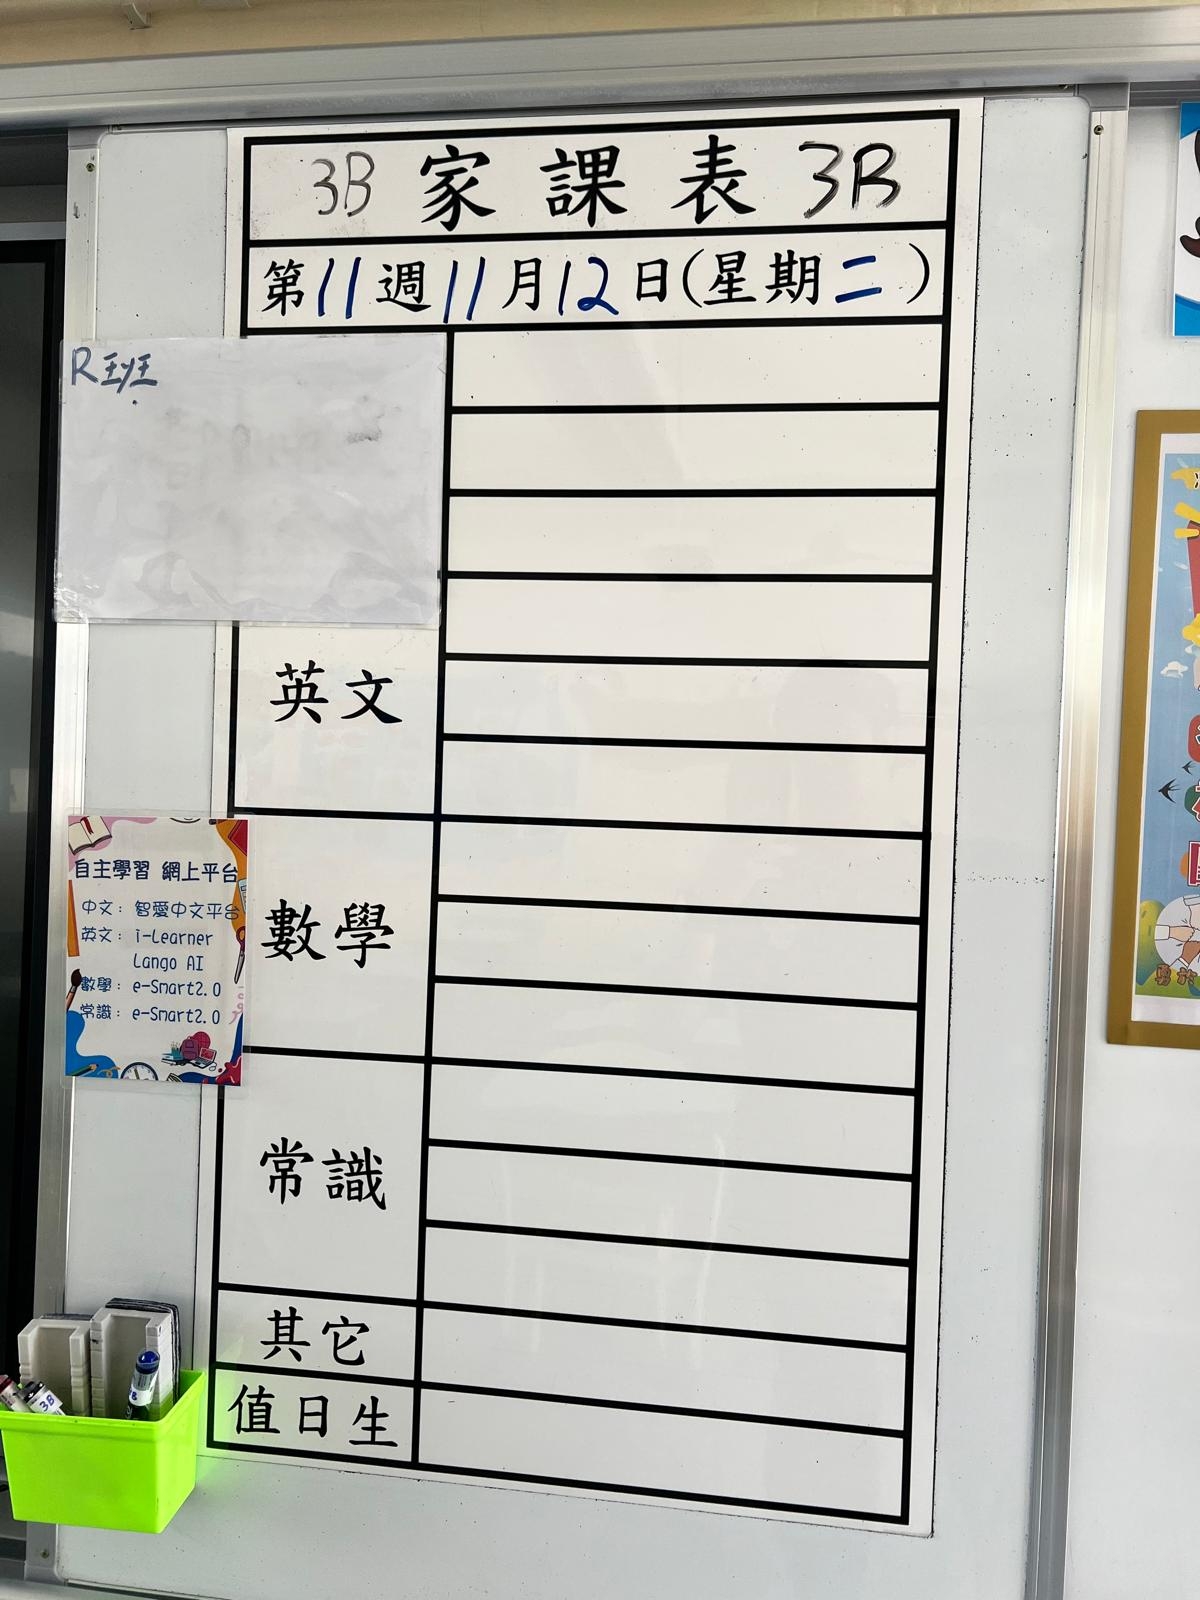 3B 家課表 3B
第11週11月12日(星期二)
R班
英文
自主學習 網上平台
中文：智愛中文平台
英文：i-Learner
Lango AI
數學：e-Smart2.0
常識：e-Smart2.0
數學
常識
其它
值日生
3B